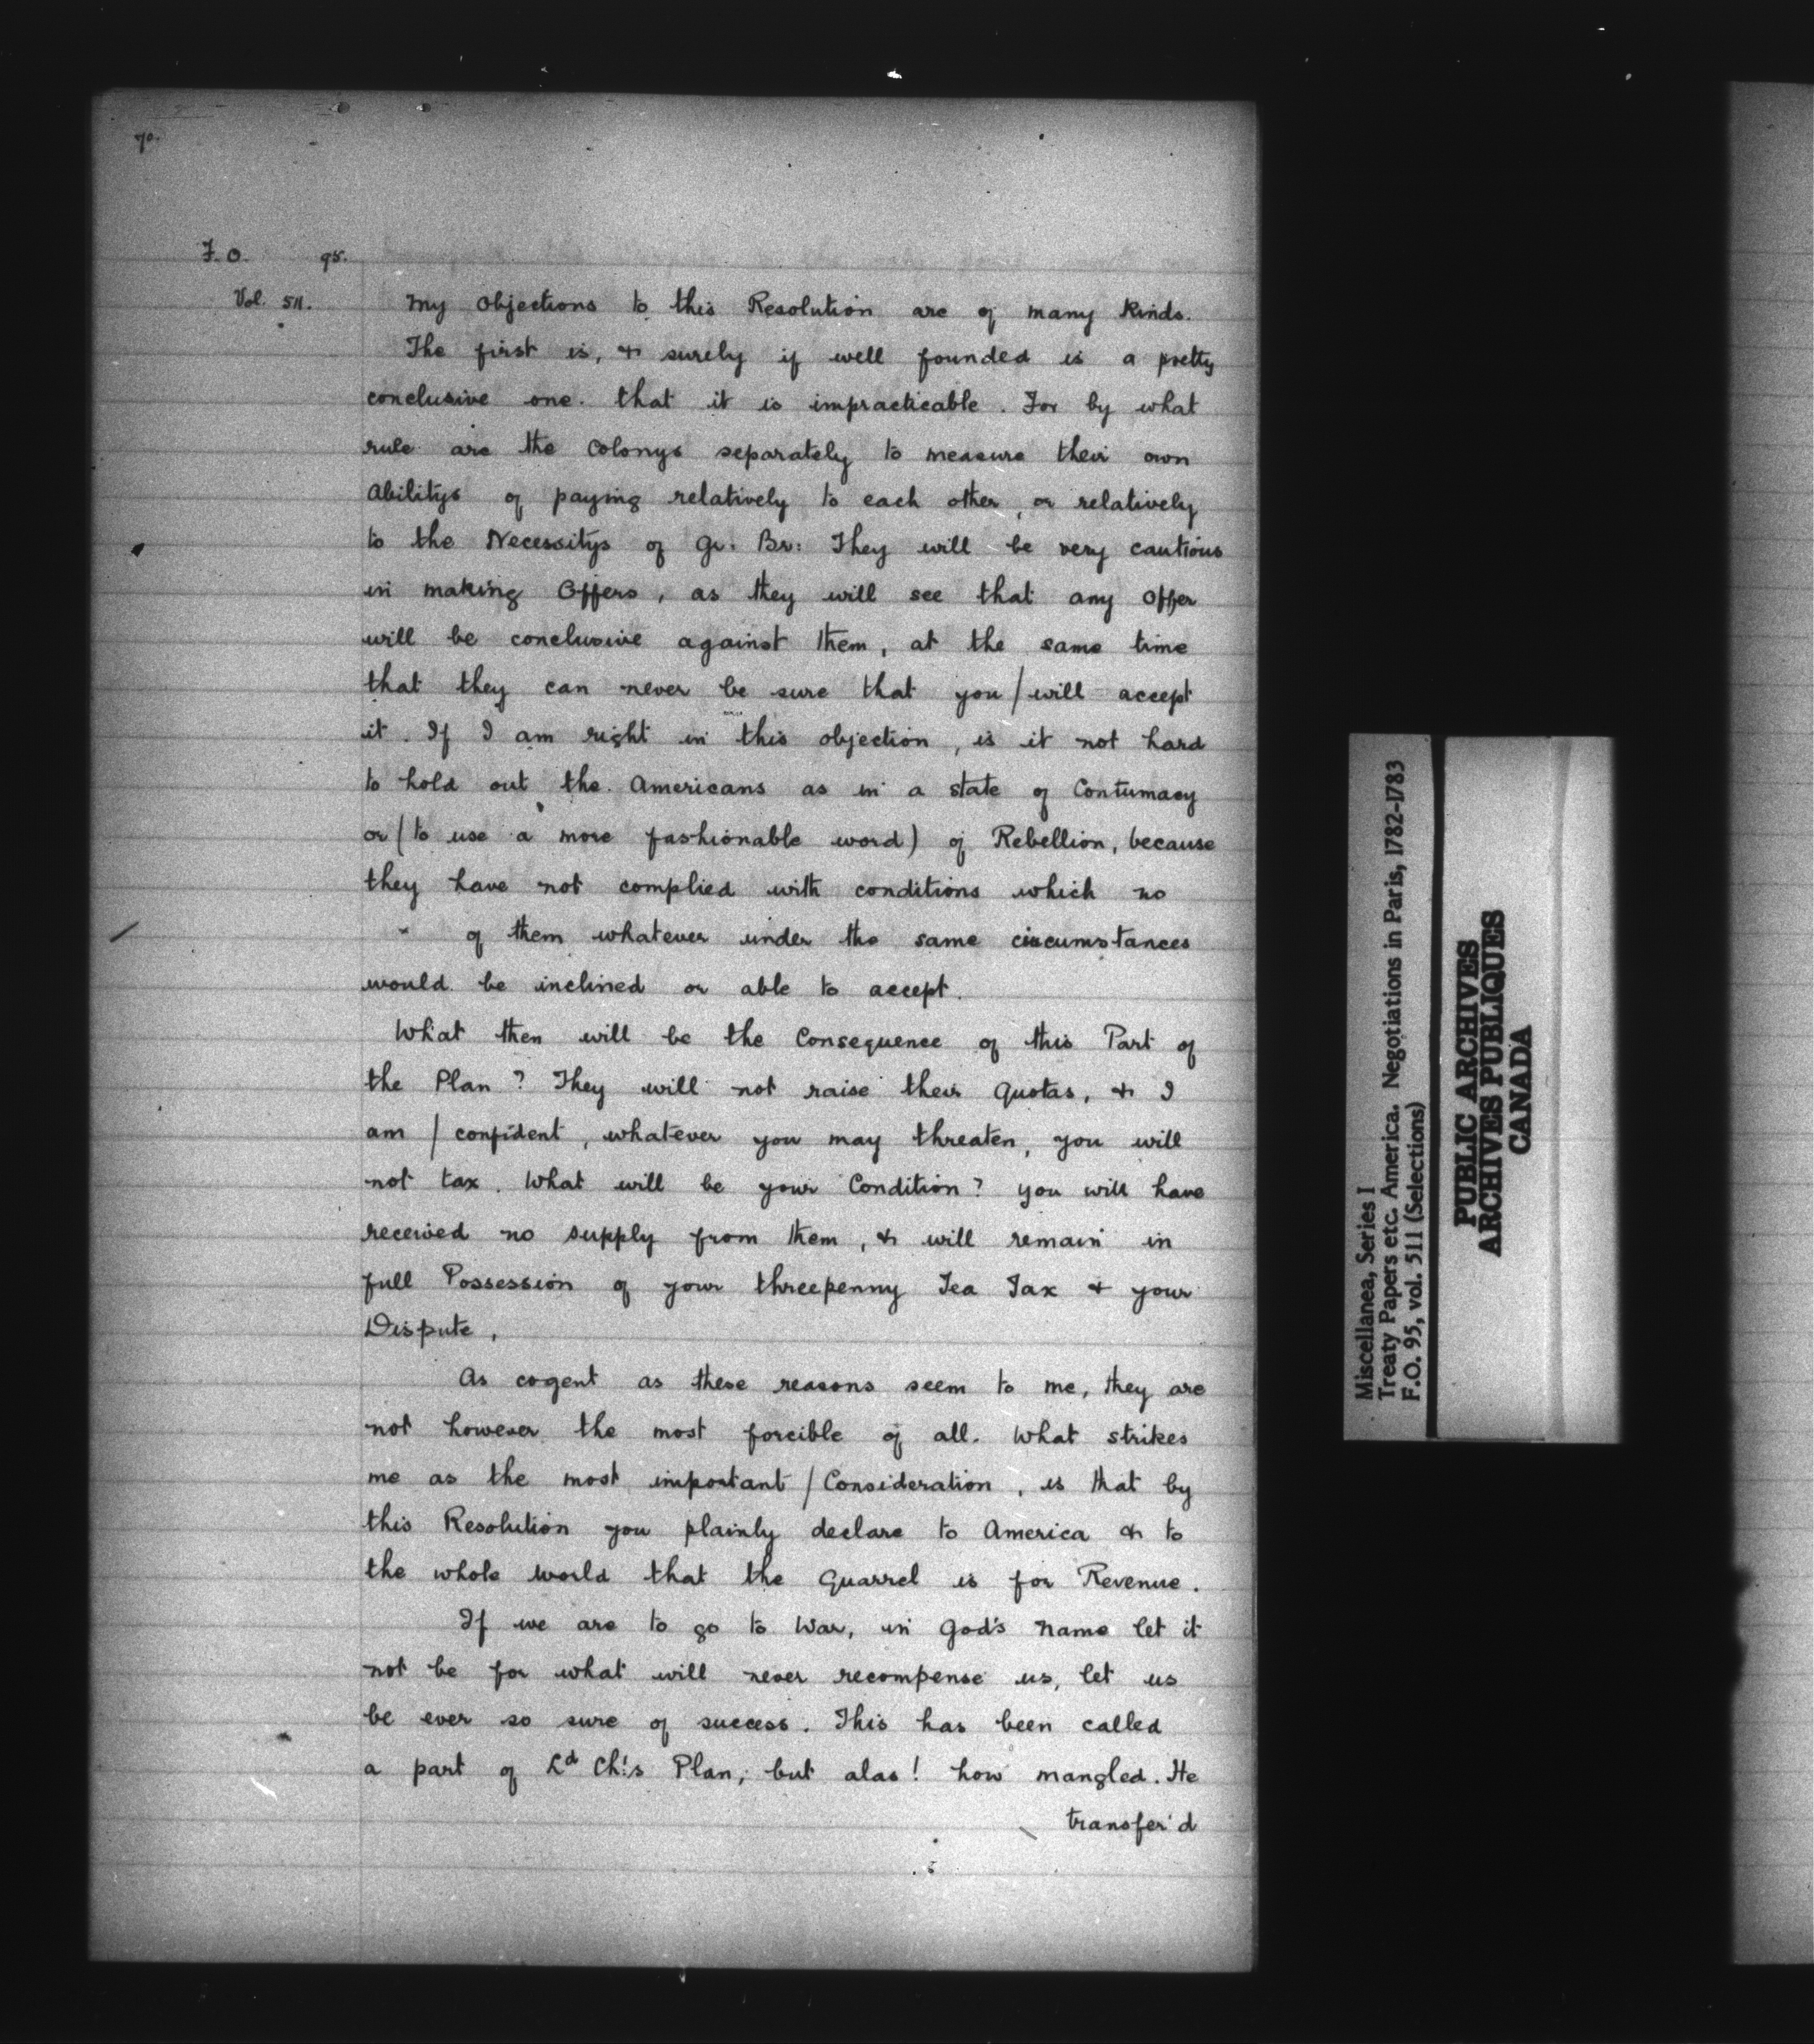 70.
F.O. 95.
Vol. 511.
My Objections to this Resolution are of many Kinds.
The first is, & surely if well founded is a pretty
conclusive one. that it is impracticable. For by what
rule are the Colonys separately to measure their own
Abilitys of paying relatively to each other, or relatively
to the Necessitys of Gr. Br: They will be very cautious
in making Offers, as they will see that any Offer
will be conclusive against them, at the same time
that they can never be sure that you / will accept
it. If I am right in this objection, is it not hard
to hold out the Americans as in a state of Contumacy
or (to use a more fashionable word) of Rebellion, because
they have not complied with conditions which no
" of them whatever under the same circumstances
would be inclined or able to accept.
What then will be the Consequence of this Part of
the Plan? They will not raise their Quotas, & I
am / confident, whatever you may threaten, you will
not tax. What will be your Condition? you will have
received no supply from them, & will remain in
full Possession of your threepenny Tea Tax & your
Dispute,
As cogent as these reasons seem to me, they are
not however the most forcible of all. What strikes
me as the most important / Consideration, is that by
this Resolution you plainly declare to America & to
the whole World that the Quarrel is for Revenue.
If we are to go to War, in God's Name let it
not be for what will never recompense us, let us
be ever so sure of success. This has been called
a part of Ld Ch:'s Plan, but alas! how mangled. He
transfer'd
Miscellanea, Series I
Treaty Papers etc. America. Negotiations in Paris, 1782-1783
F.O. 95, vol. 511 (Selections)
PUBLIC ARCHIVES
ARCHIVES PUBLIQUES
CANADA